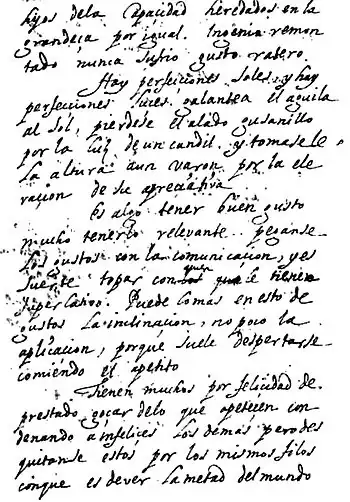 hijos dela Capacidad heredados en la
grandeça por igual. Ingenio remon
tado nunca sufrio gusto ratero.
Hay perfeciones soles, y hay
perfecciones luces. galantea el aguila
al Sol, pierdese el alado gusanillo
por la luz de un candil. y tomasele
la altura aun varon, por la ele
vacion de su apreciativa
Es algo tener buen gusto
mucho tenerlo relevante. peganse
los gustos con la comunicacion, y es
suerte topar con quien le tiene
superlativo. Puede lo mas en esto de
gustos la inclinacion, no poco la
aplicacion, porque suele despertarse
comiendo el apetito
Tienen muchos por felicidad de
prestado goçar delo que apetecen con
denando a infelices los demas pero des
quitanse estos por los mismos filos
conque es de ver la metad del mundo